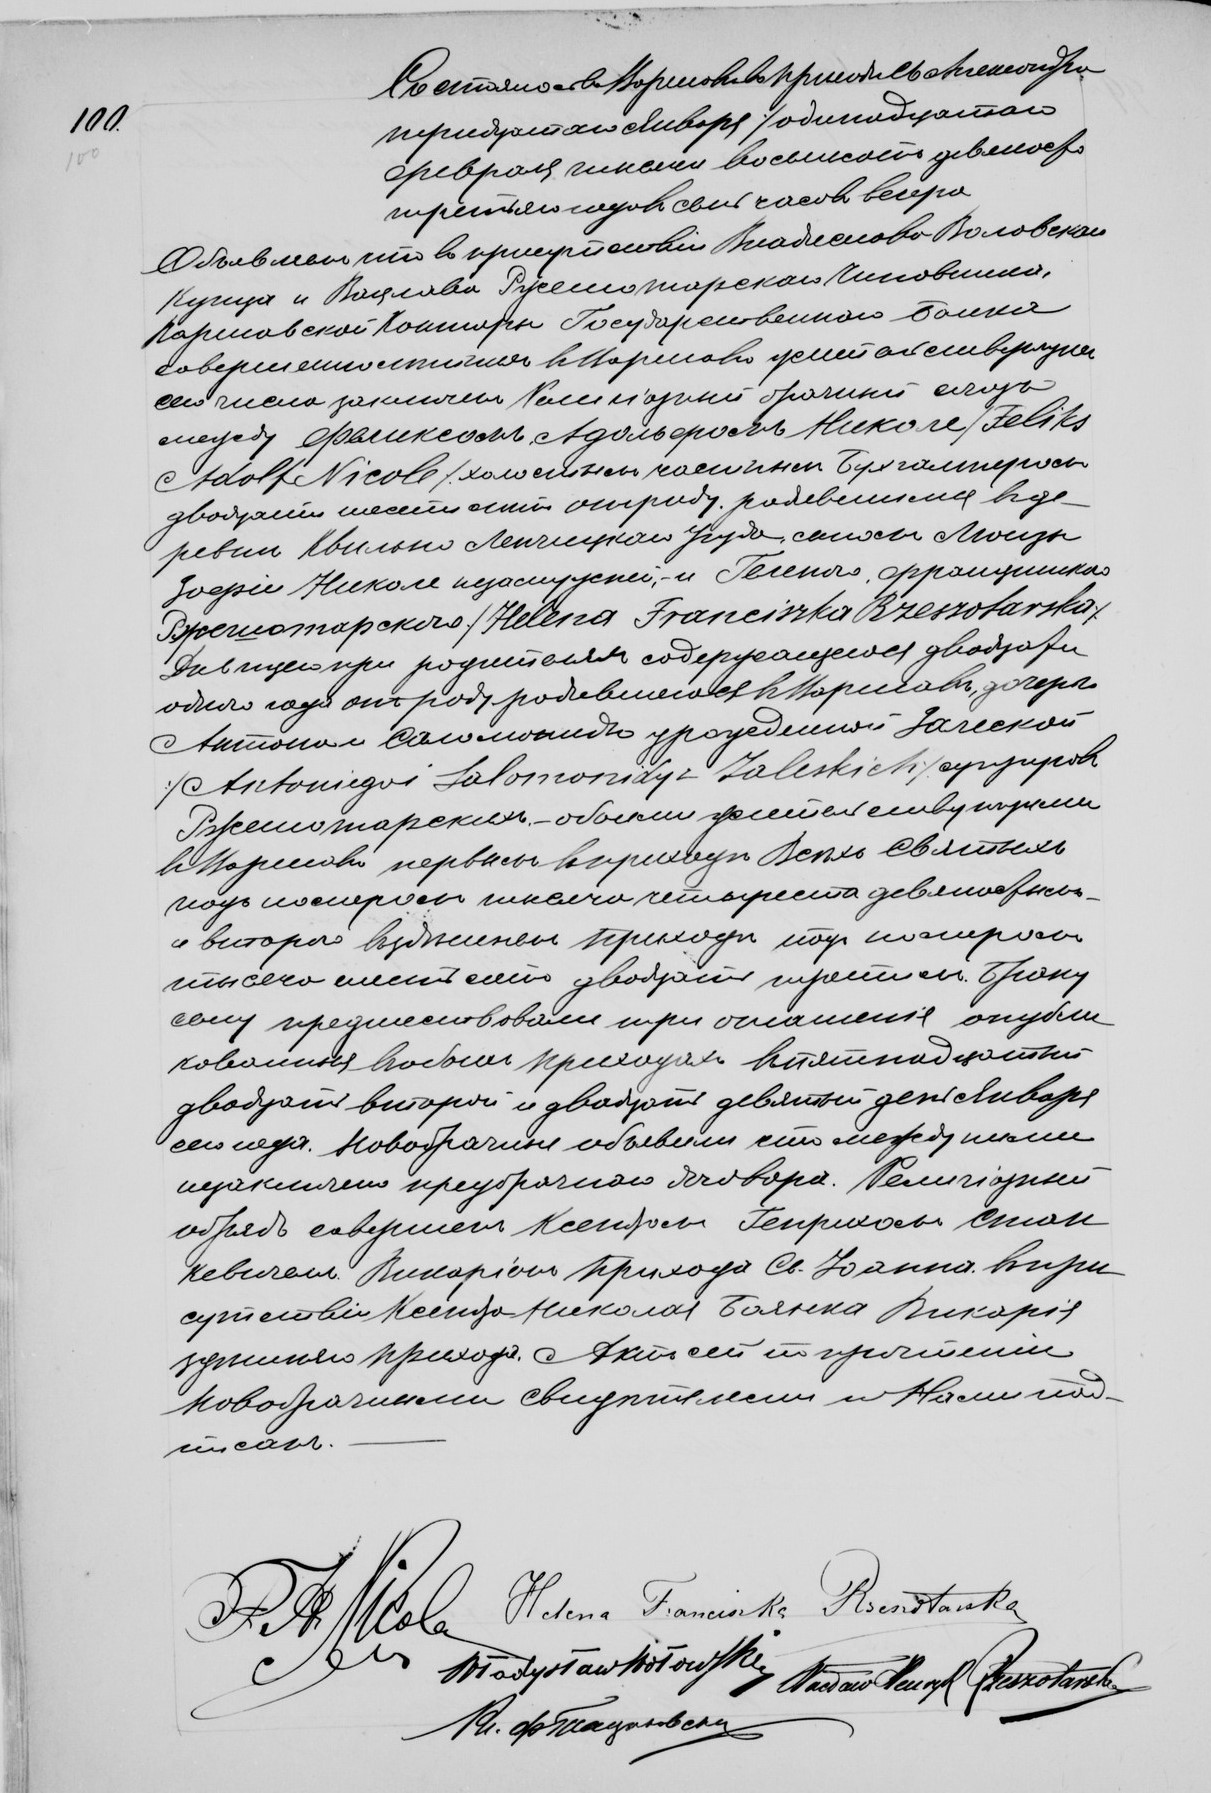 100.
100
Состоялось въ Варшавѣ въ приходѣ Св. Александра
тридцатаго Января /: одинадцатаго
Февраля тысяча восемьсотъ девяносто
третьяго года въ семь часовъ вечера
Объявляемъ что въ присутствіи Владислава Воловскаго
Купца и Вацлава Ржешотарскаго Чиновника,
Варшавской Конторы Государственнаго Банка
совершеннолѣтнихъ въ Варшавѣ жительствующихъ
сего числа заключенъ Религіозный брачный союзъ
между Феликсомъ, Адольфомъ Николе /: Feliks
Adolf Nicole /: холостымъ частнымъ Бухгалтеромъ
двадцати шести лѣтъ отъ роду, родившимся въ де-
ревни Квильно Ленчицкаго Уѣзда, сыномъ Луизы
Зофіи Николе незамужней, - и Геленою, Францишкою
Ржешотарскою /: Helena Franciszka Rzeszotarska /:
Дѣвицею при родителяхъ содержащеюся двадцати
одного года отъ роду родившеюся въ Варшавѣ, дочерью
Антона и Саломониды урожденной Залеской
:/ Antoniego i Salomonidy z Zaleskich /: супруговъ
Ржешотарскихъ. - обоими жительствующими
въ Варшавѣ первымъ въ приходѣ Всѣхъ Святыхъ
подъ номеромъ тысяча четыреста девяностымъ -
и второю въ здѣшнемъ приходѣ подъ номеромъ
тысяча шестьсотъ двадцать третьимъ. Браку
сему предшествовали три оглашенія опубли
кованныя въ обоихъ приходахъ въ пятнадцатый
двадцать второй и двадцать девятый день Января
сего года. Новобрачные объявили что между ними
незаключено предбрачнаго договора. Религіозный
обрядъ совершенъ Ксендзомъ Генрихомъ Стан
кевичемъ Викаріемъ прихода Св. Іоанна. въ при
сутствіи Ксендза Николая Боянка Викарія
здѣшняго прихода. Актъ сей по прочтеніи
Новобрачными Свидѣтелями и Нами под-
писанъ. —
F. A. Nicole
Helena Franciszka Rzeszotarska
Władysław Wołowski
Wacław Henryk Rzeszotarski
Кс.